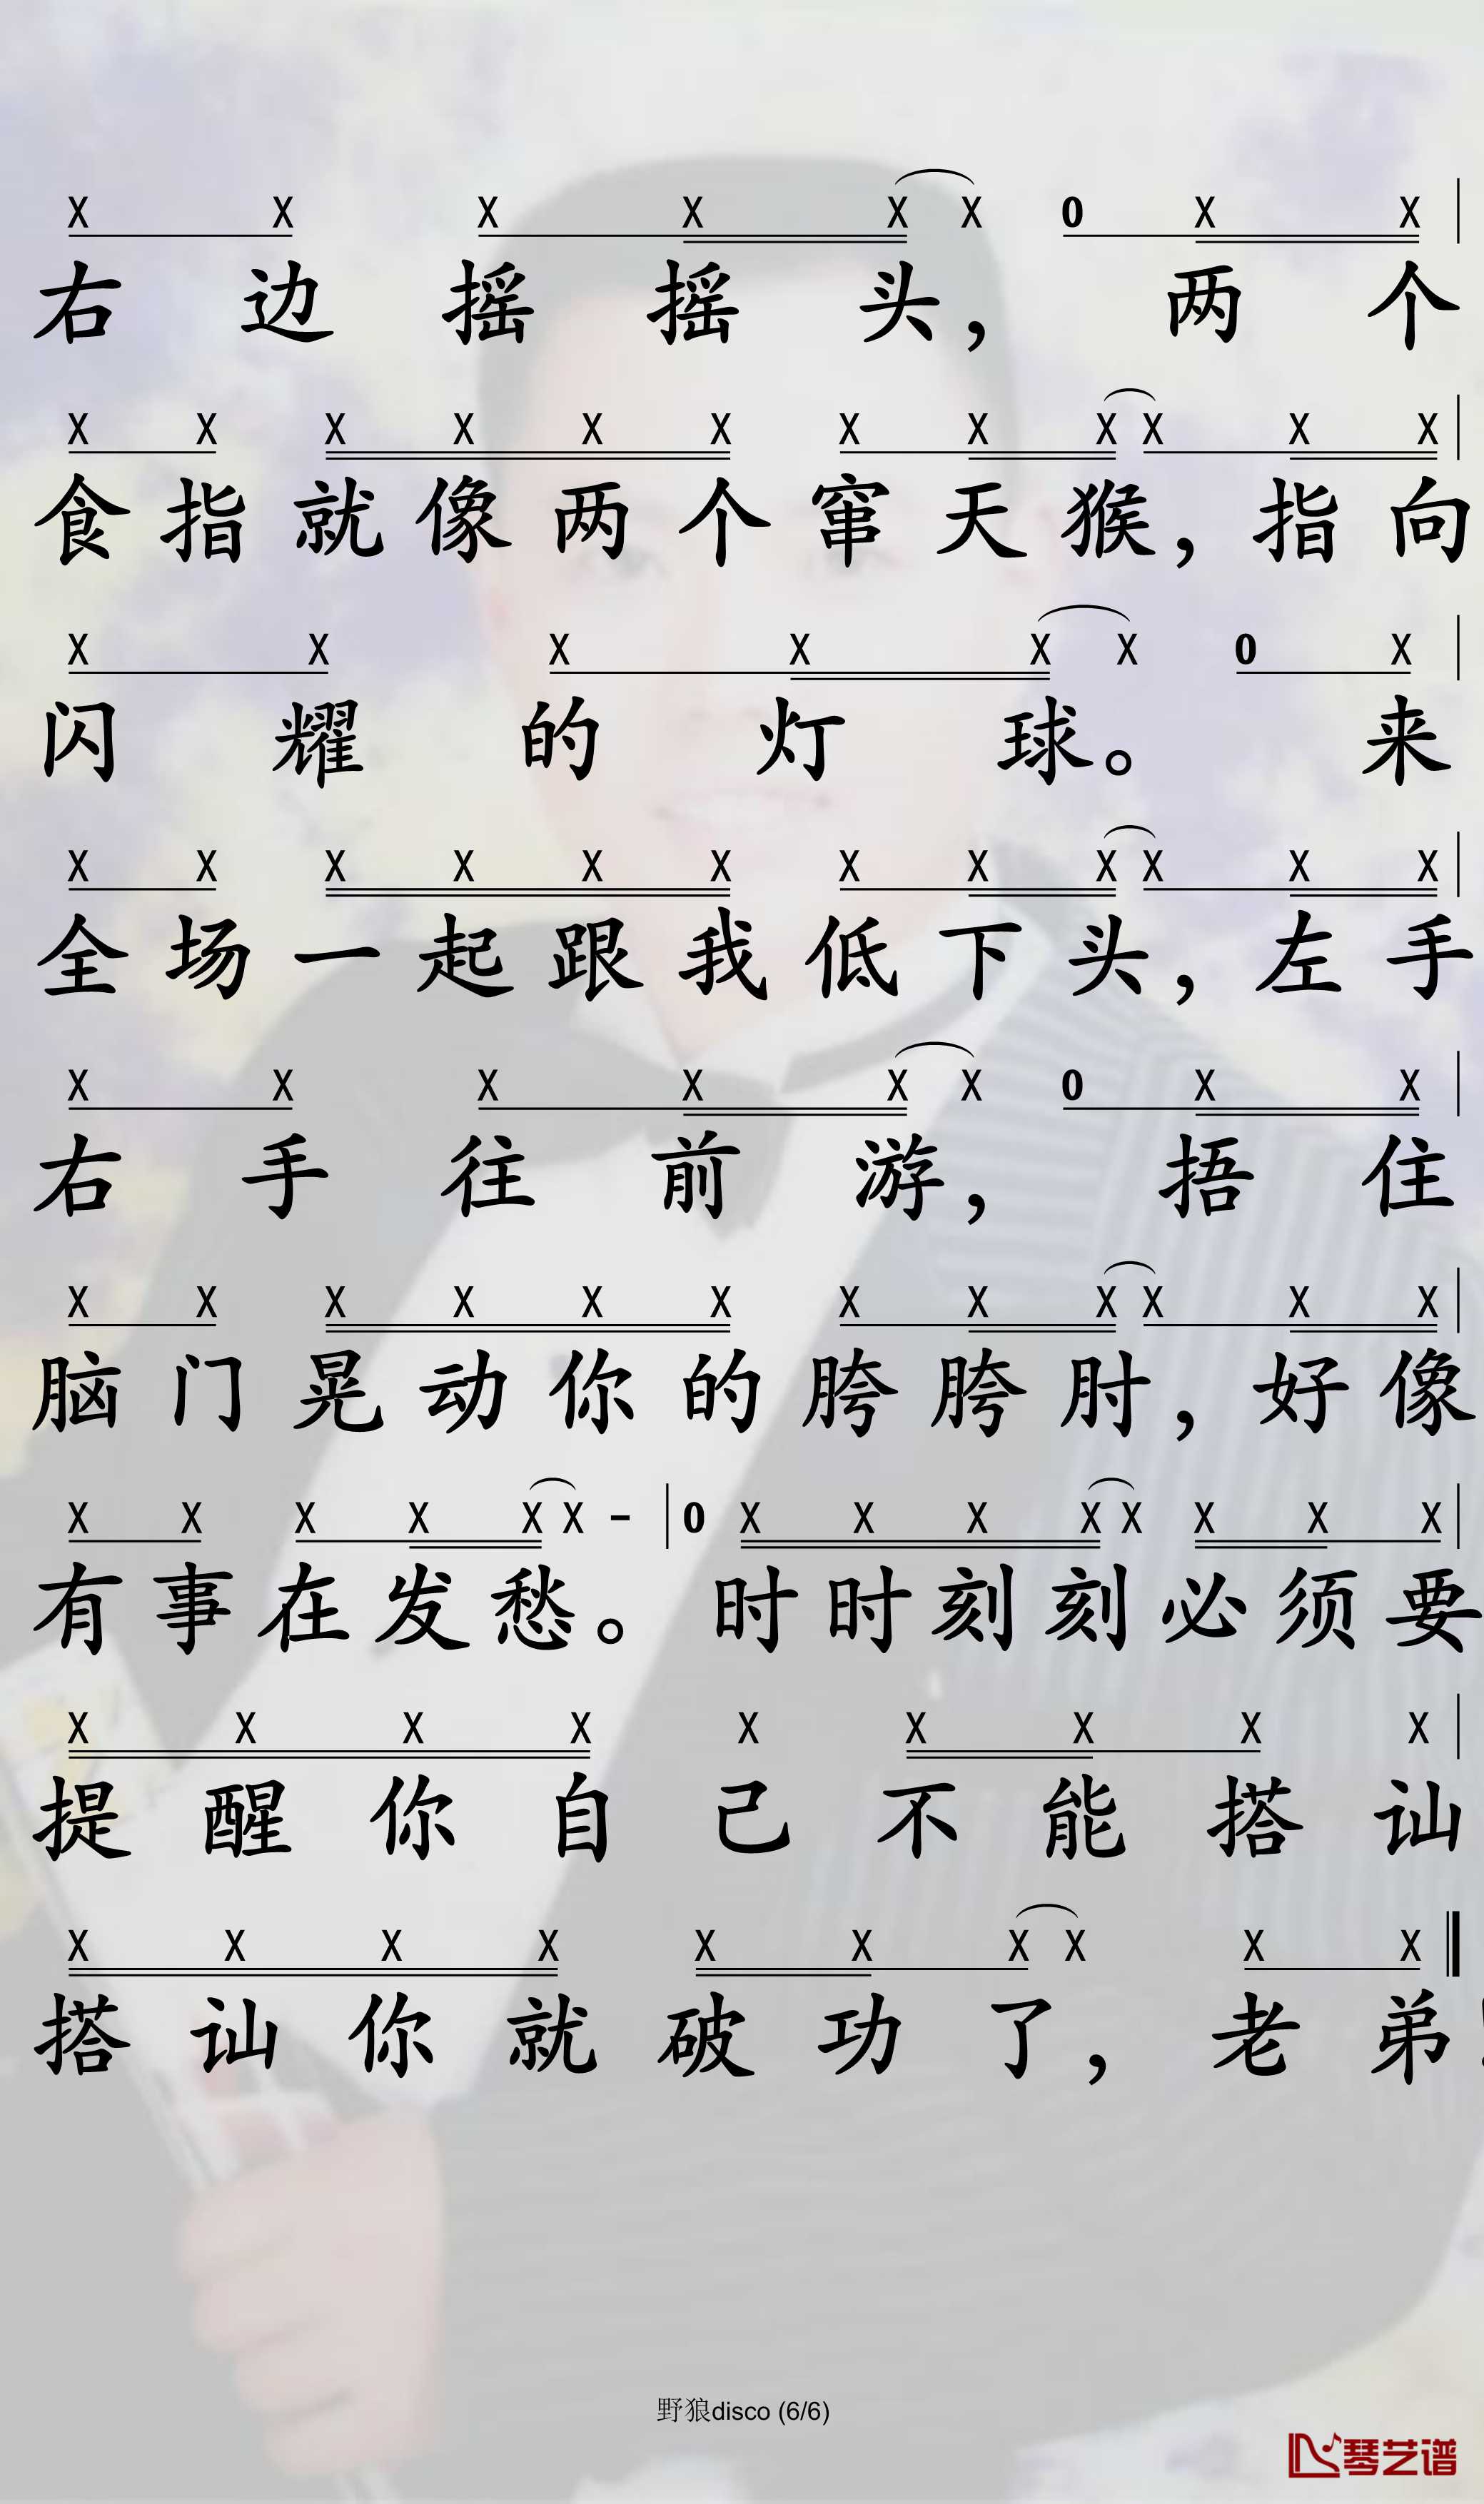 X X X X X X 0 X X
右边摇摇头， 两个
X X X X X X X X X X X X
食指就像两个窜天猴，指向
X X X X X X 0 X
闪耀的灯球。 来
X X X X X X X X X X X X
全场一起跟我低下头，左手
X X X X X X 0 X X
右手往前游， 捂住
X X X X X X X X X X X X
脑门晃动你的胯胯肘，好像
X X X X X X - | 0 X X X X X X X X
有事在发愁。 时时刻刻必须要
X X X X X X X X X
提醒你自己不能搭讪
X X X X X X X X X X
搭讪你就破功了， 老弟
野狼disco (6/6)
琴艺谱